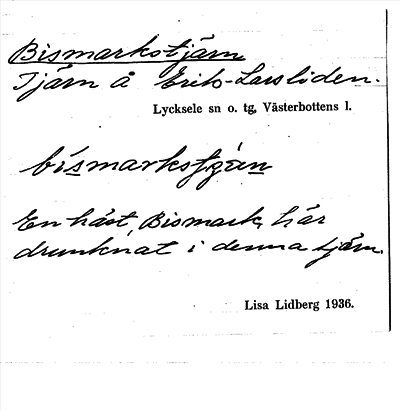 Bismarkstjärn
Tjärn å Eriks-Larsliden.
Lycksele sn o. tg, Västerbottens l.
En häst, Bismark, har
drunknat i denna tjärn.
Lisa Lidberg 1936.